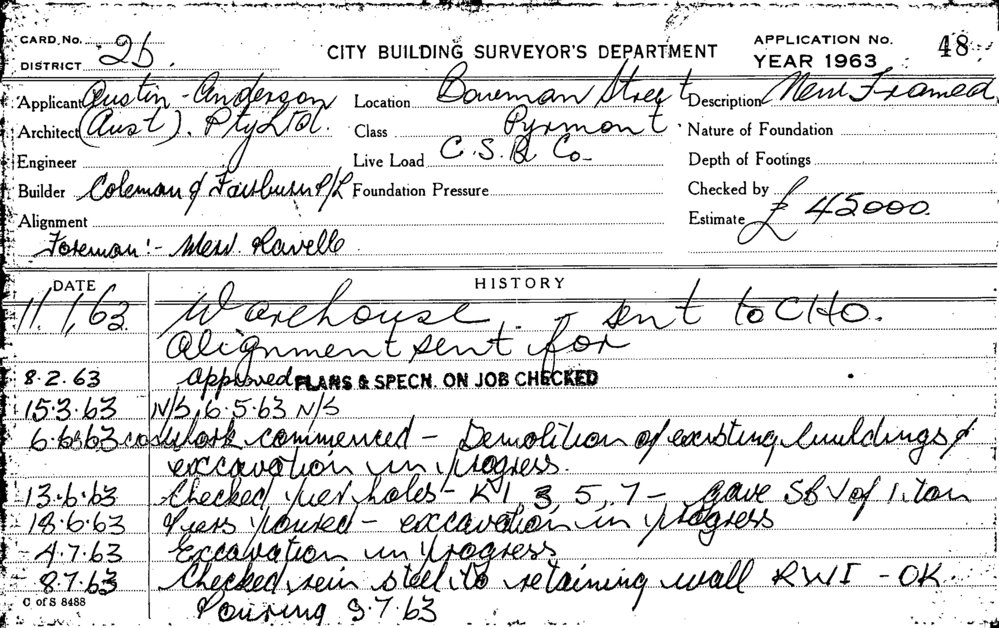 CARD. No.
DISTRICT 2b.
CITY BUILDING SURVEYOR'S DEPARTMENT
APPLICATION No. 48
YEAR 1963
Applicant Austin-Anderson
Location Bowman Street
Description New Framed
Architect (Aust). Pty Ltd.
Class Pyrmont.
Nature of Foundation
Engineer
Live Load C.S.R. Co.
Depth of Footings
Builder Coleman & Fairburn P/L
Foundation Pressure
Checked by
Alignment
Estimate £ 45000.
Foreman:- Merv. Lavelle
DATE HISTORY
11.1.63 Warehouse. - sent to CHO.
Alignment sent for
8.2.63 Approved PLANS & SPECN. ON JOB CHECKED
15.3.63 N/S, 6.5.63 N/S
6.6.63 Work commenced - Demolition of existing buildings &
excavation in progress.
13.6.63 Checked pier holes - K1, 3, 5, 7 - gave SBV of 1 ton
18.6.63 Piers poured - excavation in progress
4.7.63 Excavation in progress
8.7.63 Checked rein steel to retaining wall RW1 - OK.
Pouring 9.7.63
C of S 8488